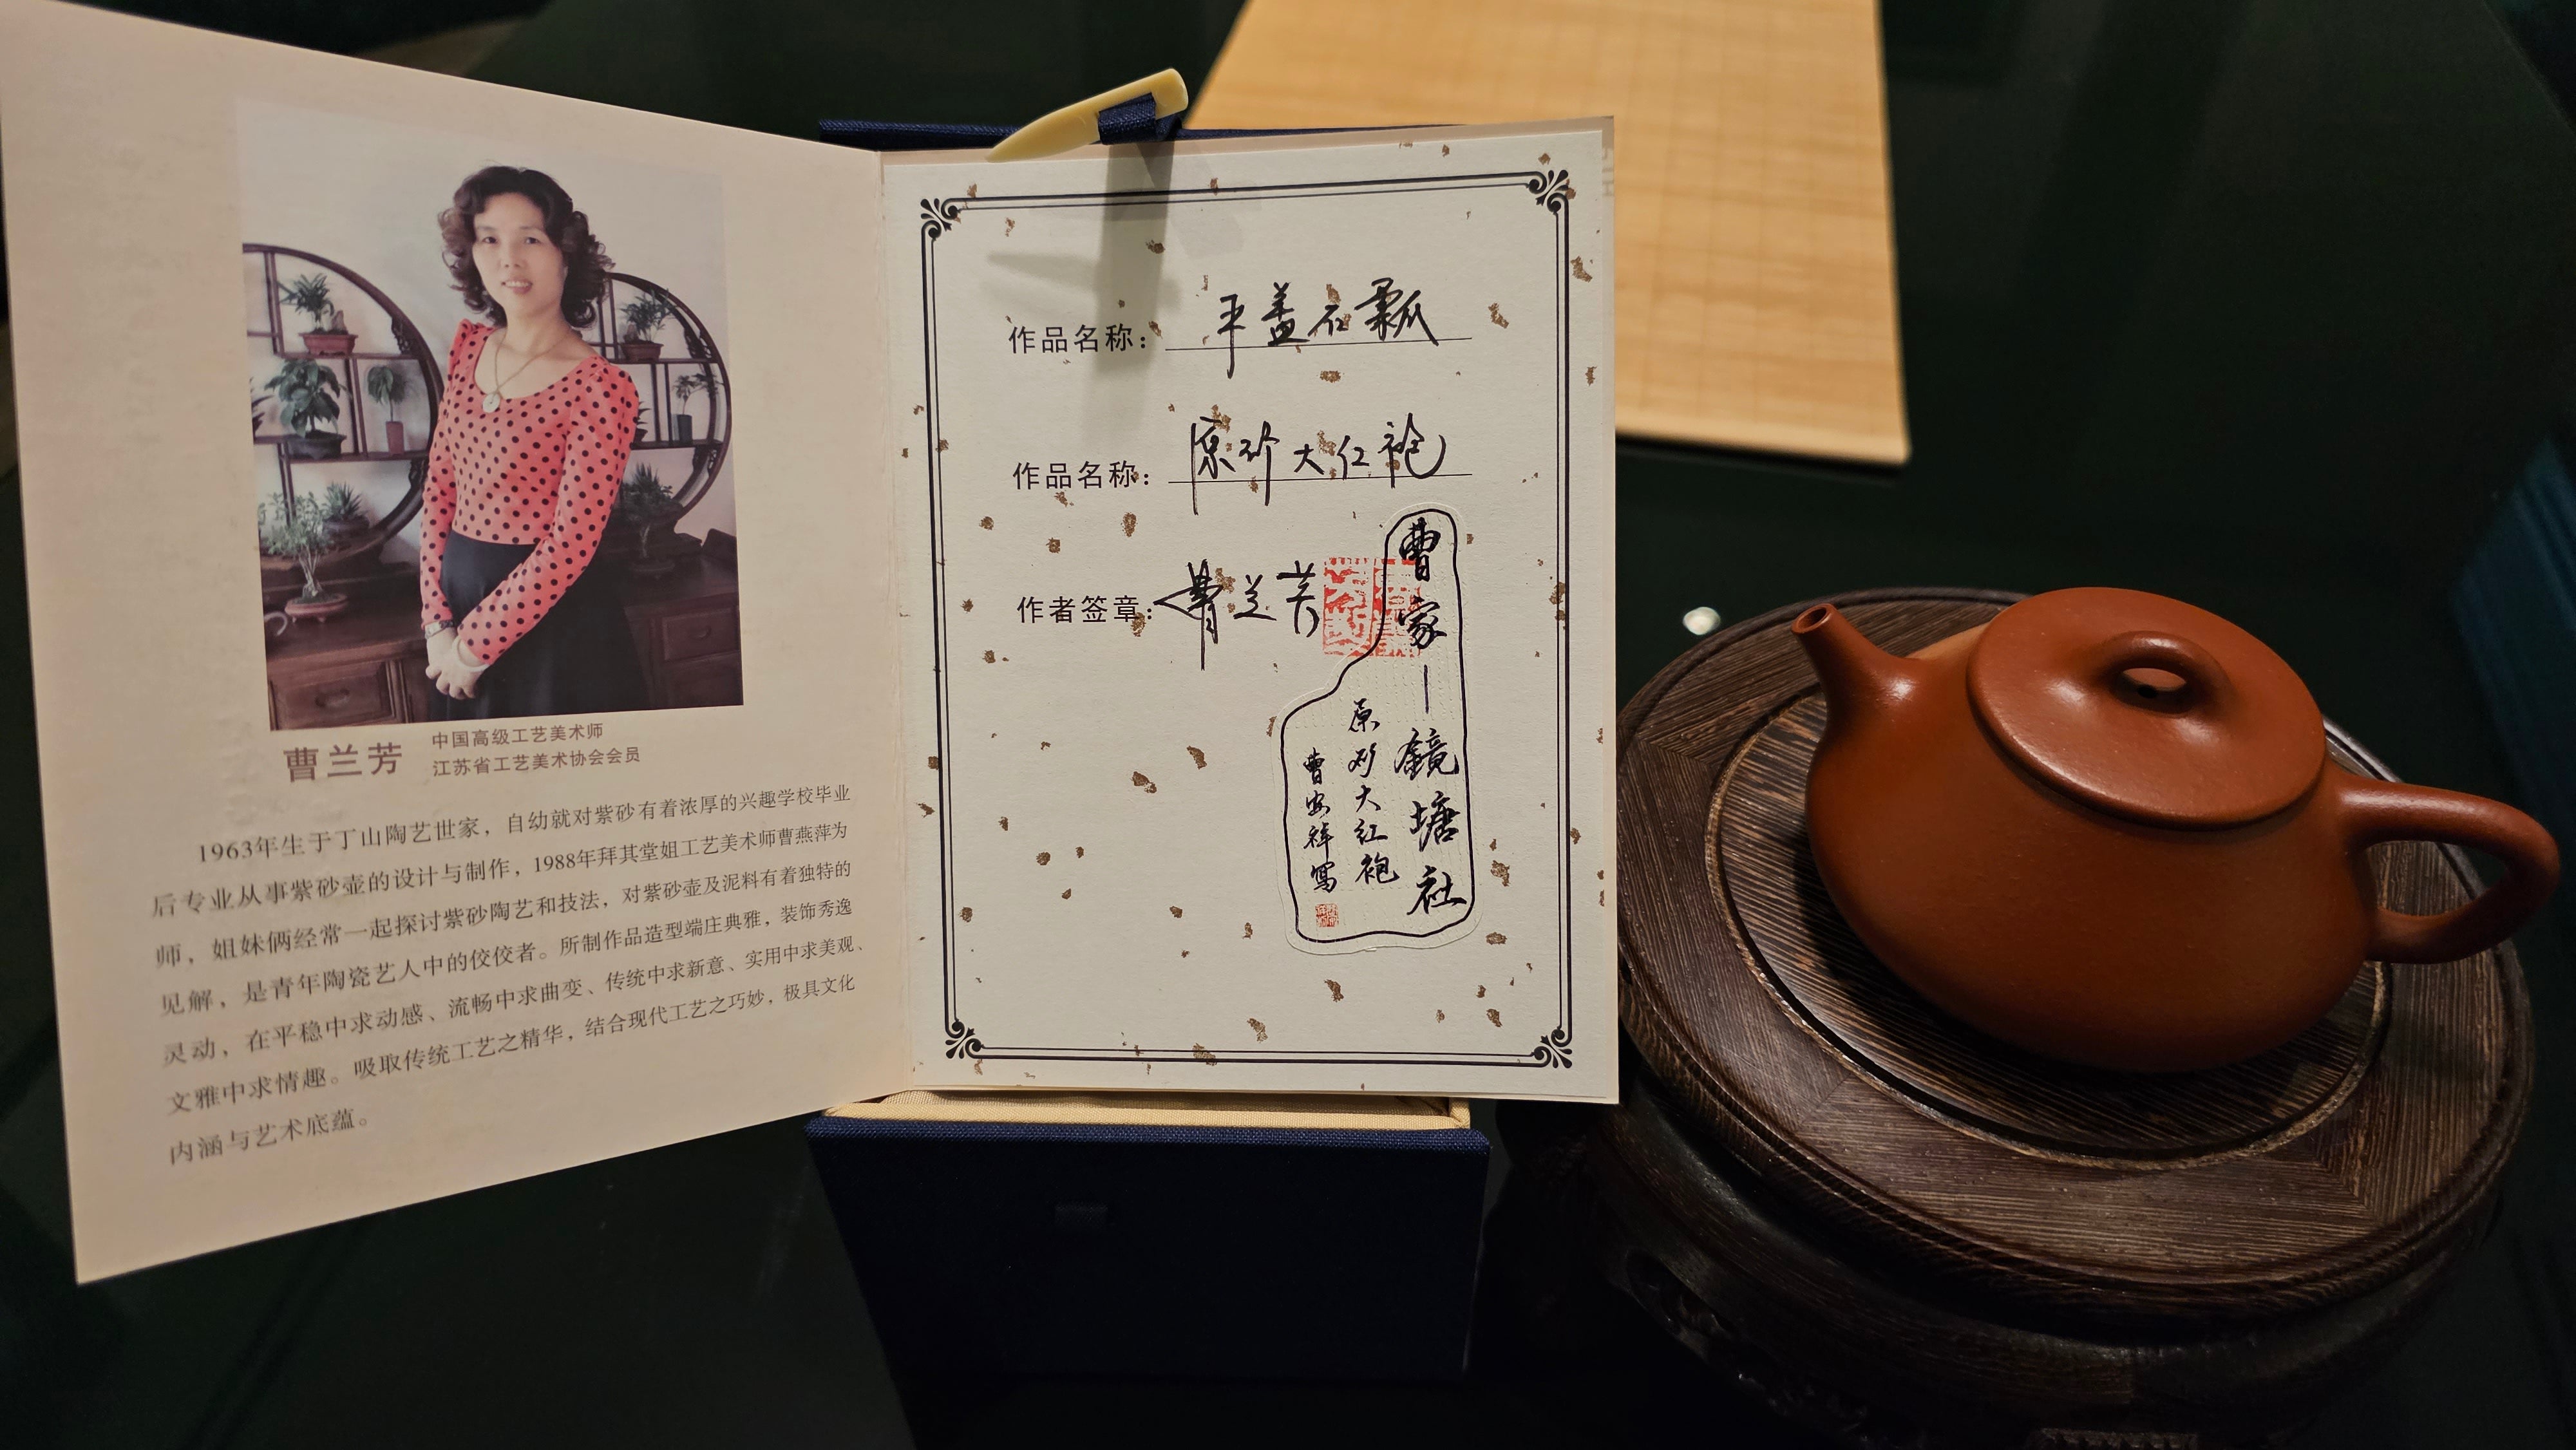 曹兰芳
中国高级工艺美术师
江苏省工艺美术协会会员
1963年生于丁山陶艺世家，自幼就对紫砂有着浓厚的兴趣学校毕业
后专业从事紫砂壶的设计与制作，1988年拜其堂姐工艺美术师曹燕萍为
师，姐妹俩经常一起探讨紫砂陶艺和技法，对紫砂壶及泥料有着独特的
见解，是青年陶瓷艺人中的佼佼者。所制作品造型端庄典雅，装饰秀逸
灵动，在平稳中求动感、流畅中求曲变、传统中求新意、实用中求美观、
文雅中求情趣。吸取传统工艺之精华，结合现代工艺之巧妙，极具文化
内涵与艺术底蕴。
作品名称：平盖石瓢
作品名称：原矿大红袍
作者签章：曹兰芳
曹家—鏡塘社
原矿大红袍
曹安祥寫